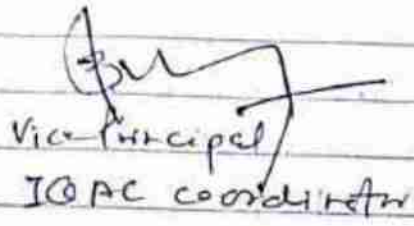 Vice-Principal
IQAC coordinator